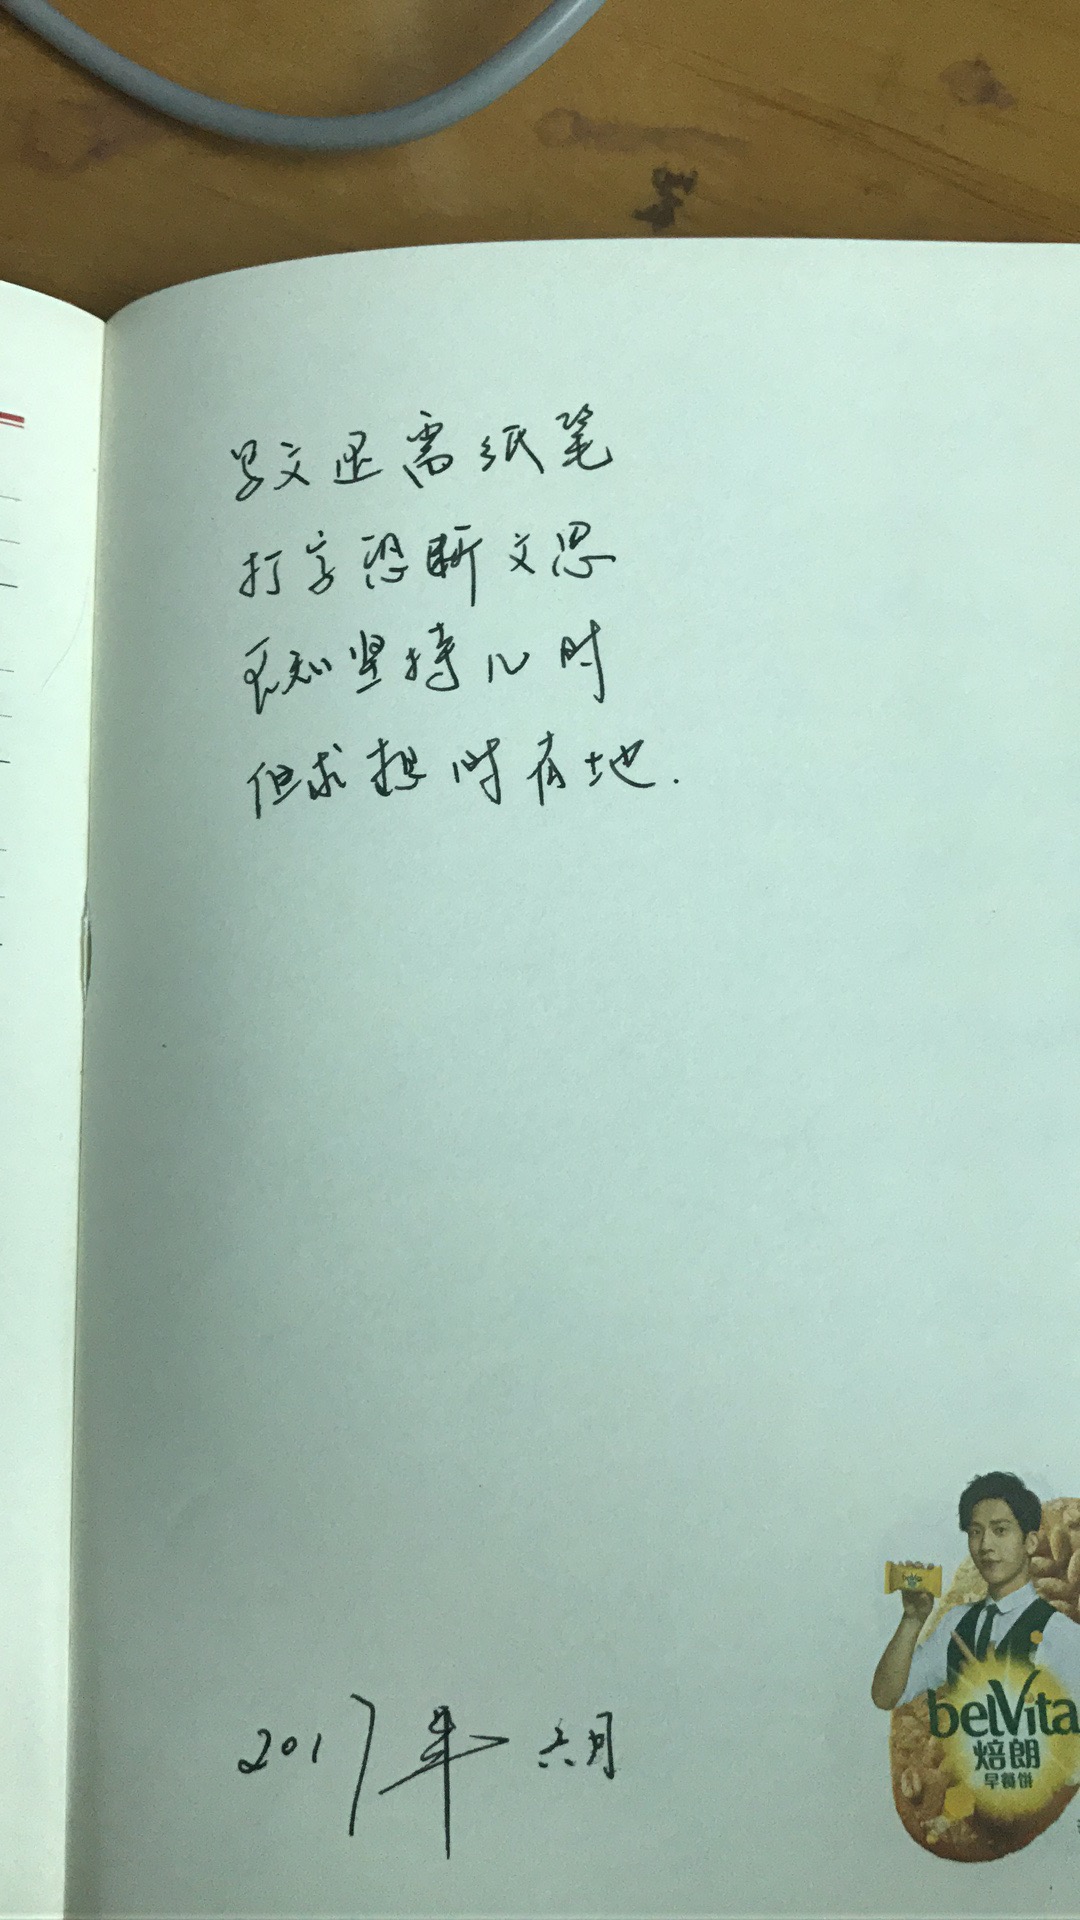 写文还需纸笔
打字恐断文思
不知坚持几时
但求想时有地.
2017年六月
belVita
焙朗
早餐饼